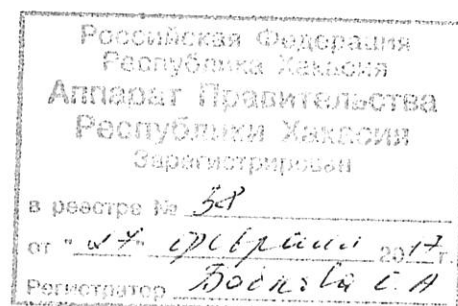 Российская Федерация
Республика Хакасия
Аппарат Правительства
Республики Хакасия
Зарегистрирован
в реестре № 58
от "27" февраля 2017 г.
Регистратор